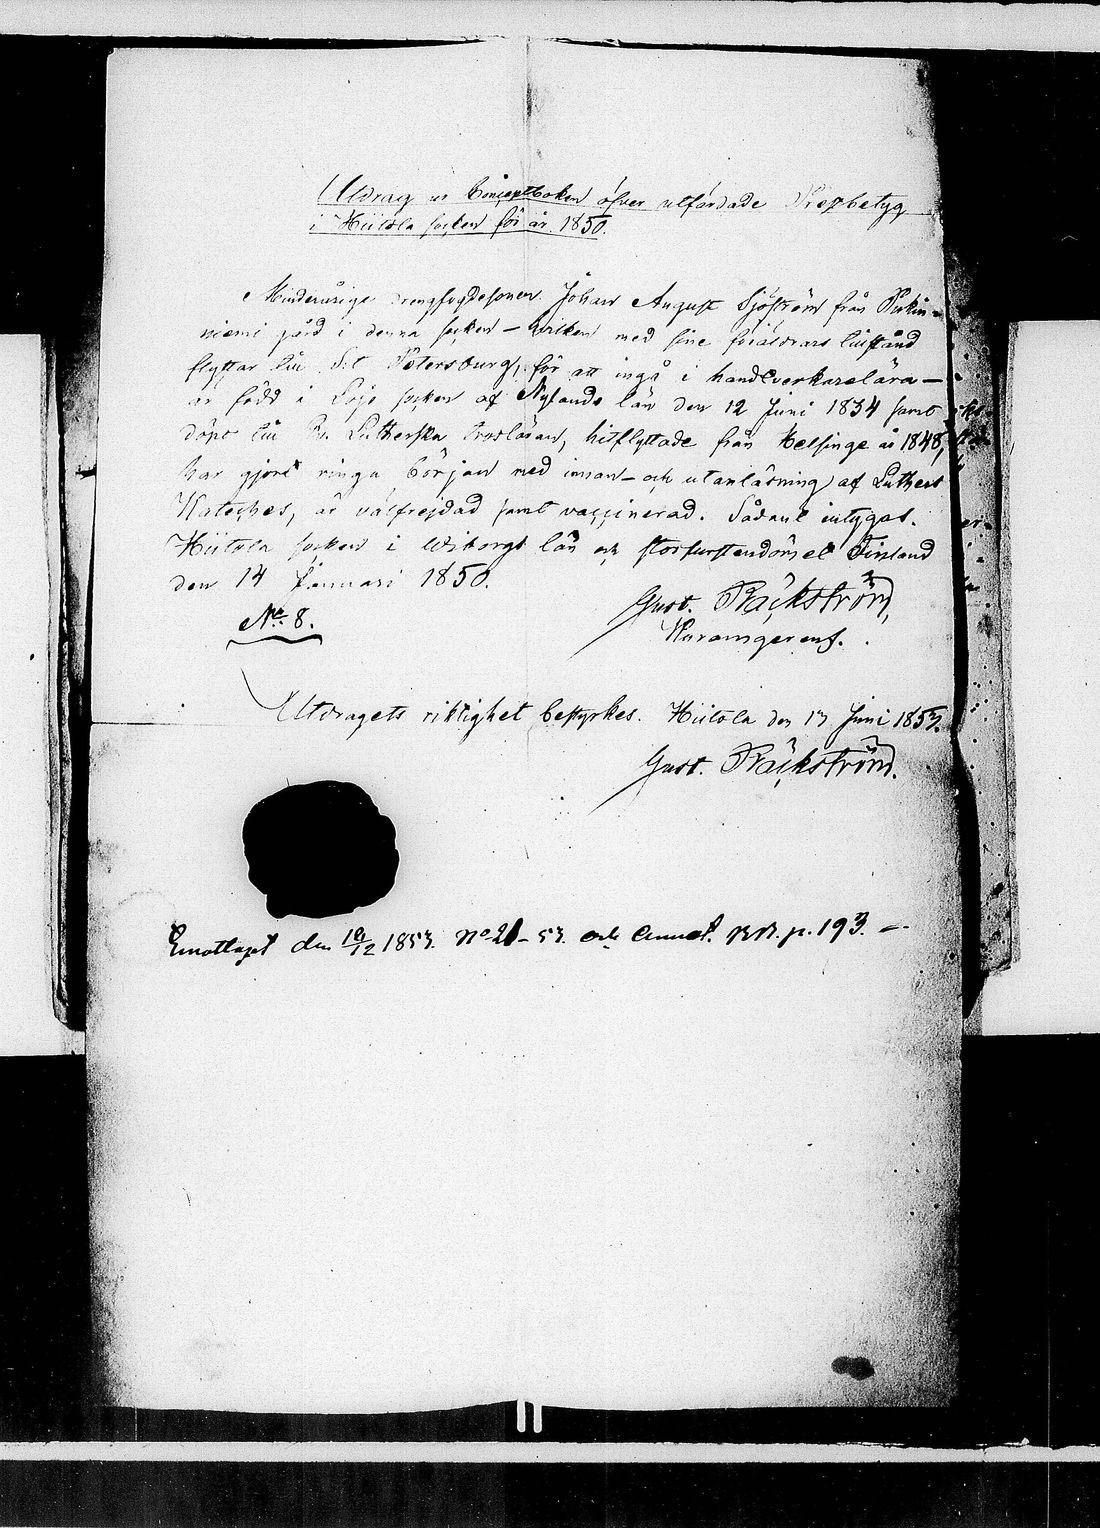 Utdrag ur Conceptboken öfver utfärdade Prestbetyg
i Hiitola socken för år 1850.
Minderårige drengfogdesonen Johan August Sjöström från Pukin-
niemi gård i denna socken – hvilken med sine föräldrars tillstånd
flyttar till S:t Petersburg, för att ingå i handtverkarelära –
är född i Lojo socken af Nylands län den 12 Juni 1834 samt
döpt till Ev. Lutherska trosläran, hitflyttade från Helsinge år 1848,
har gjort ringa början med innan- och utanläsning af Luthers
Kateches, är välfrejdad samt vaccinerad. Sådant intygas.
Hiitola socken i Wiborgs län och storfurstendömet Finland
den 14 Januari 1850.
No. 8.
Gust. Bäckström,
Utdragets riktighet bestyrkes. Hiitola den 13 Juni 1853.
Gust. Bäckström.
Emottaget den 1853. No 21-53. och Annot. p. 193.